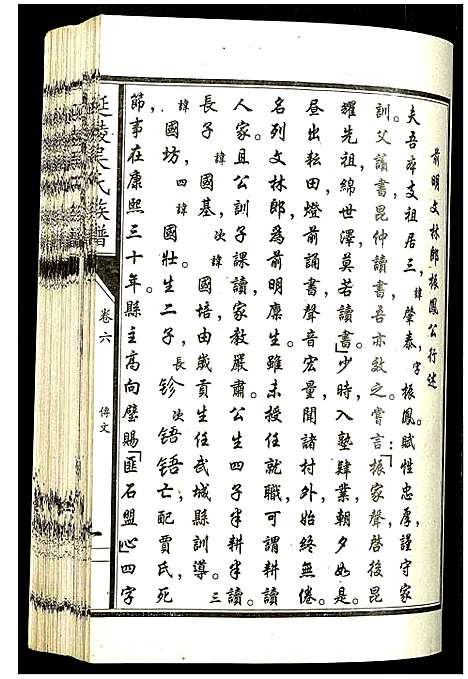 前明文林郎振鳳公行述
夫吾卒支祖居三,諱肇泰,字振鳳。賦性忠厚,謹守家
訓。父議書,昆仲讀書,吾亦效之。嘗言:「振家聲,啓後昆
耀先祖,綿世澤,莫若讀書。」少時入塾肆業,朝夕如是。
昼出耘田,燈前誦書,聲音宏量,聞諸村外,始終無倦。
名列文林郎,為前明廩生。雖未授任就職,可謂耕讀
人家。且公訓子課讀,家教嚴肅。公生四子,半耕半讀。
長子諱國基,次諱國培,由歲貢生任武城縣訓導。三
諱國坊,四諱國壯。生二子,長鉁,次鋙。鋙亡,配賈氏,死
節,事在康熙三十年。縣主高向璧賜「匪石盟心」四字
延陵吳氏族譜
卷六
傳文
一